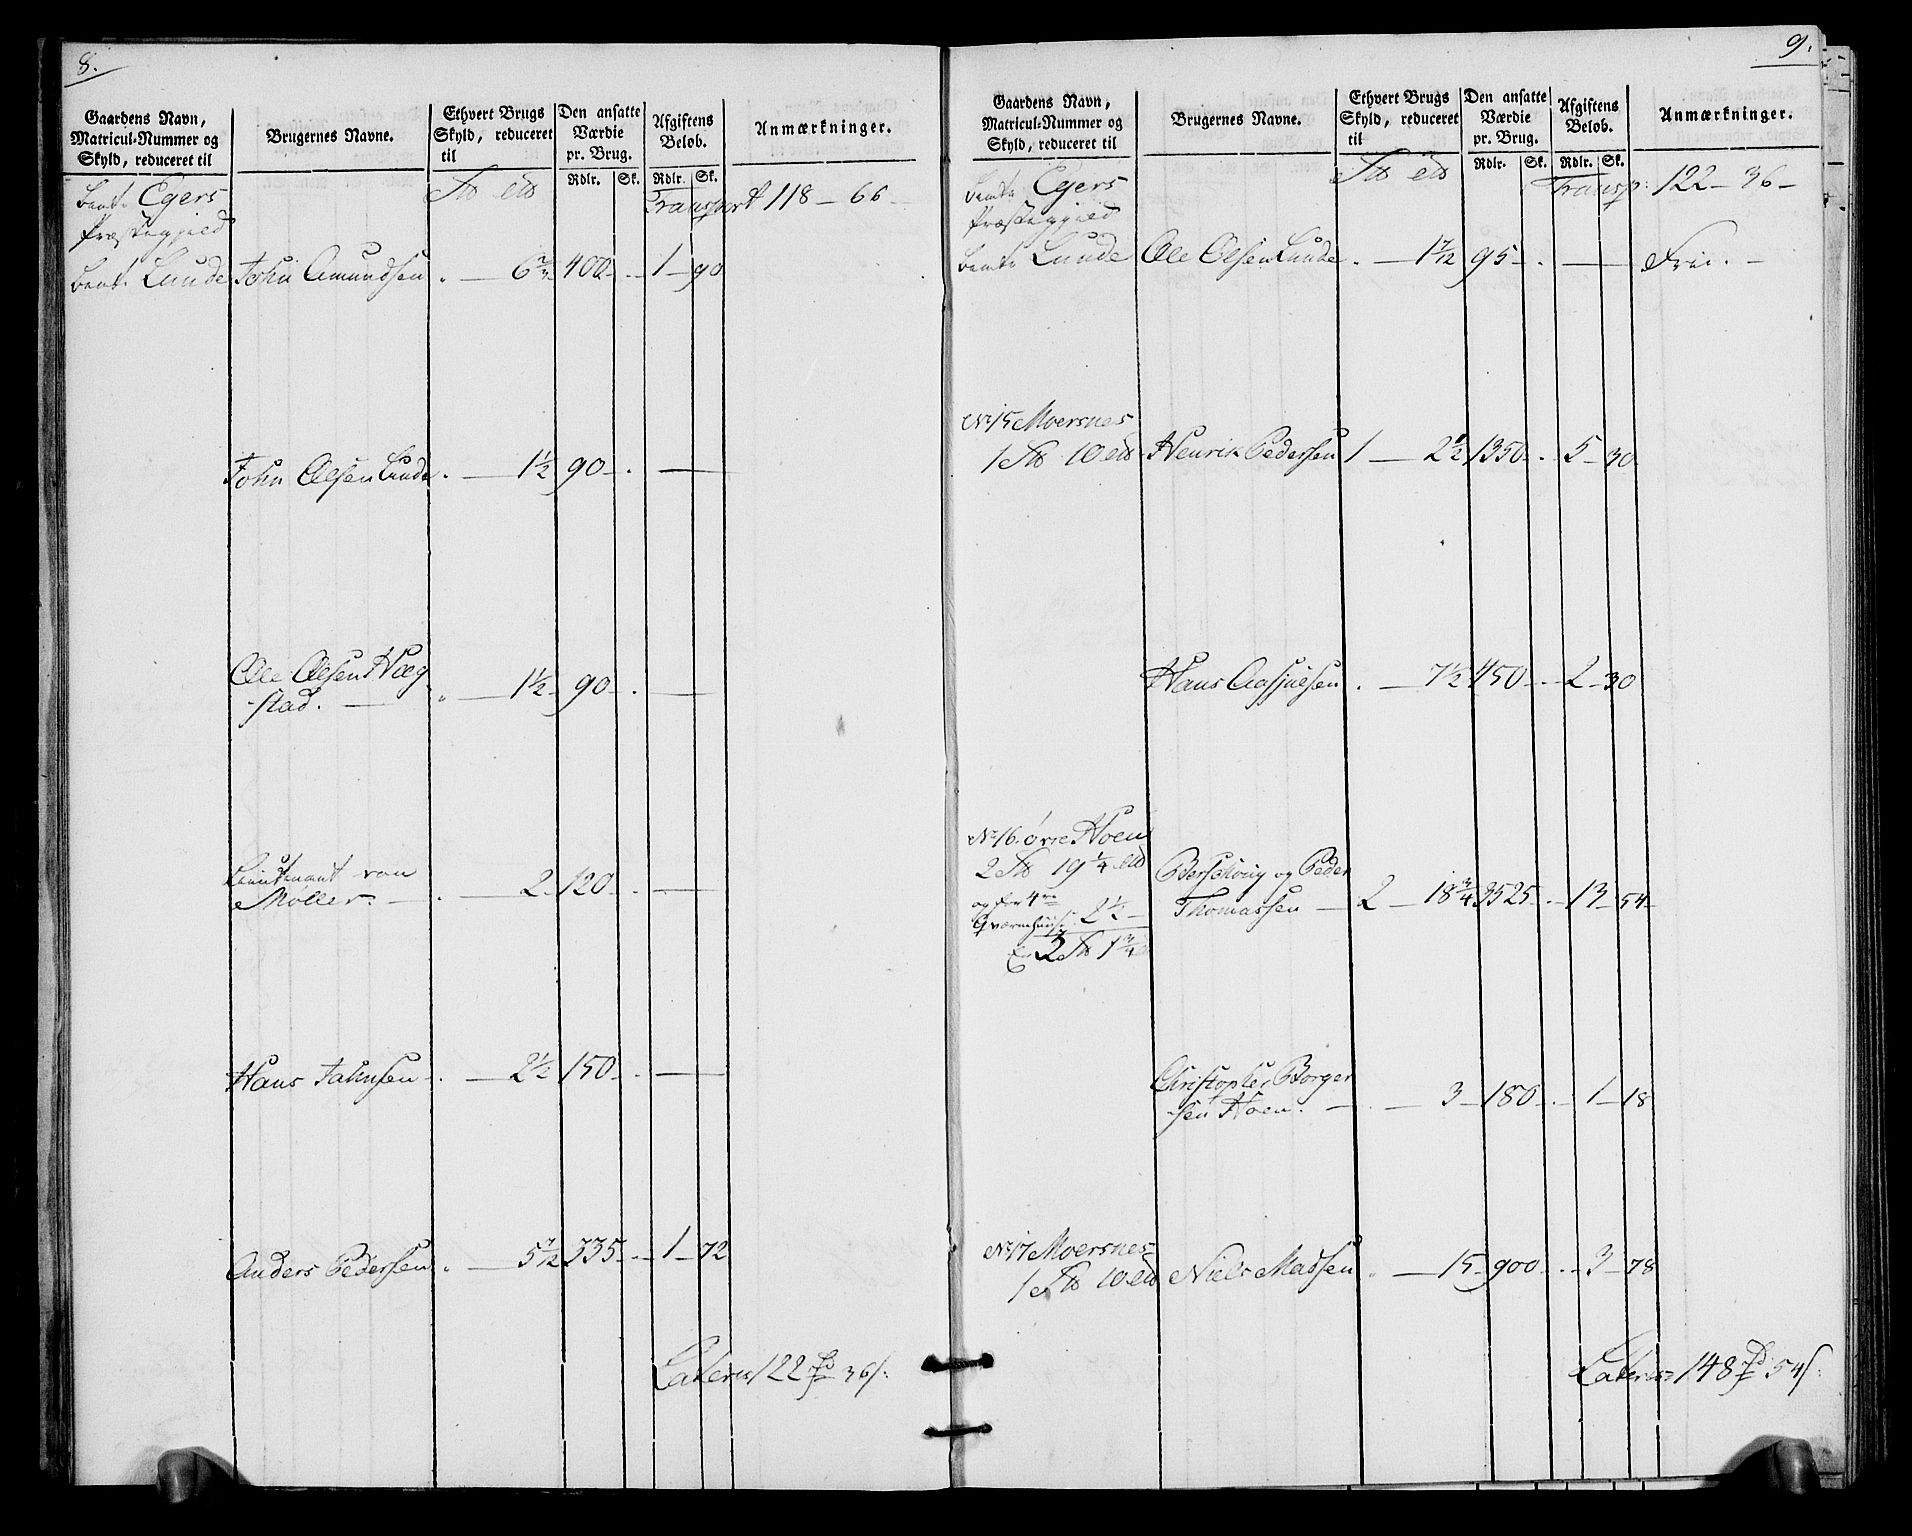 8.
Gaardens Navn,
Matricul-Nummer og
Skyld, reduceret til
Brugernes Navne.
Ethvert Brugs
Skyld, reduceret
til
Den ansatte
Værdie
pr. Brug.
Rdlr. Sk.
Afgiftens
Beløb.
Rdlr. Sk.
Anmærkninger.
Egers
Præstegjeld
Transport 118 - 66 -
Lunde John Amundsen . - 6 400 - . 1 - 90
John Olsen Lunde . - 1½ 90 - . —
Ole Olsen Hæg
-stad. — „ - 1½ - 90 - . —
Lieutenant von
Møller. — . - 2 - 120 - . —
Hans Johnsen - . - 2½ 150 - . —
Anders Pedersen . - 5 7/12 335 - . - 1 - 72
Lateris 122 36 s:
9.
Gaardens Navn,
Matricul-Nummer og
Skyld, reduceret til
Brugernes Navne.
Ethvert Brugs
Skyld, reduceret
til
Den ansatte
Værdie
pr. Brug.
Rdlr. Sk.
Afgiftens
Beløb.
Rdlr. Sk.
Anmærkninger.
Egers
Præstegjeld
Transp: 122 - 36 -
Lunde Ole Olsen Lunde . - 1 7/12 95 - . — Frie. -
No 15 Moersnes
1 10 Henrik Pedersen 1 - 2½ 1350 - . 5 - 30
Hans Aasjulsen . - 7½ 450 - . 2 - 30
No 16. øvre Hoen
2 19 ¼
og for 4re
Qværnhuuse 2½ -
3 1¾
Berschoug og Peder
Thomassen - 2 - 18¾ 3525 - . 13 - 54 -
Christopher Borger
-sen Hoen. — . - 3 - 180 - . - 1 - 18
No 17 Moersnes
1 10 Niels Madsen . - 15 - 900 - . - 3 - 78
Lateris 148 54 s: